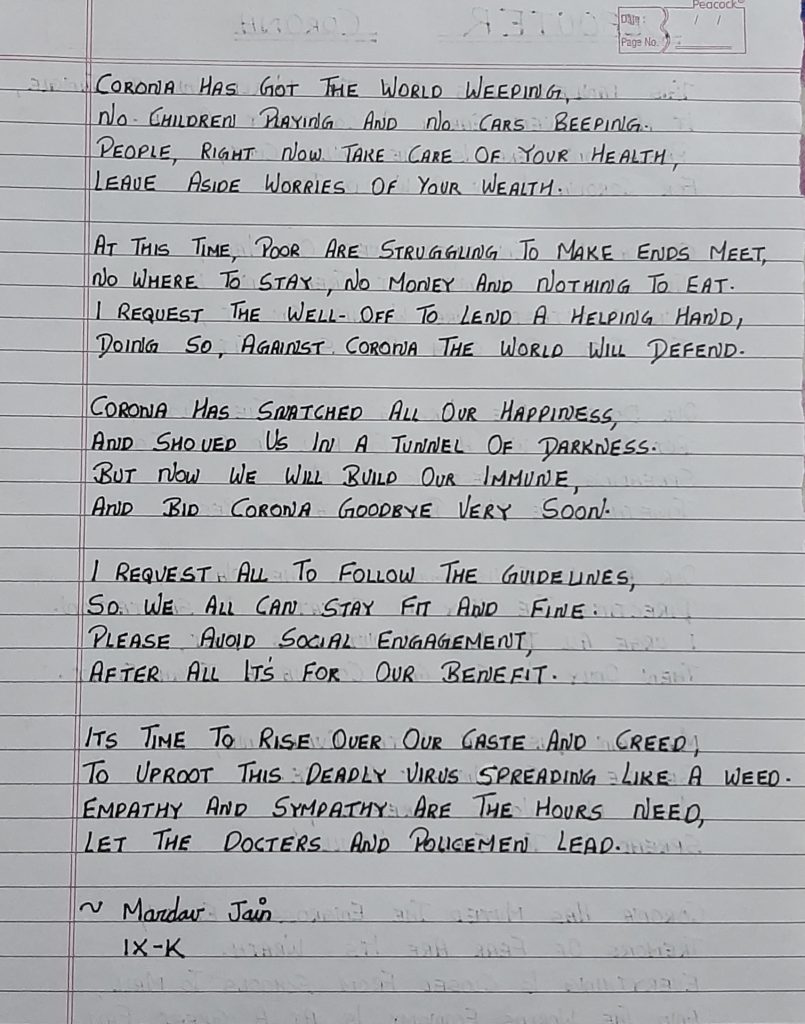 Peacock
Date : / /
Page No.
CORONA HAS GOT THE WORLD WEEPING,
NO CHILDREN PLAYING AND NO CARS BEEPING.
PEOPLE, RIGHT NOW TAKE CARE OF YOUR HEALTH,
LEAVE ASIDE WORRIES OF YOUR WEALTH.
AT THIS TIME, POOR ARE STRUGGLING TO MAKE ENDS MEET,
NO WHERE TO STAY, NO MONEY AND NOTHING TO EAT.
I REQUEST THE WELL-OFF TO LEND A HELPING HAND,
DOING SO, AGAINST CORONA THE WORLD WILL DEFEND.
CORONA HAS SNATCHED ALL OUR HAPPINESS,
AND SHOVED US IN A TUNNEL OF DARKNESS.
BUT NOW WE WILL BUILD OUR IMMUNE,
AND BID CORONA GOODBYE VERY SOON.
I REQUEST ALL TO FOLLOW THE GUIDELINES,
SO WE ALL CAN STAY FIT AND FINE.
PLEASE AVOID SOCIAL ENGAGEMENT,
AFTER ALL IT'S FOR OUR BENEFIT.
ITS TIME TO RISE OVER OUR CASTE AND CREED,
TO UPROOT THIS DEADLY VIRUS SPREADING LIKE A WEED.
EMPATHY AND SYMPATHY ARE THE HOURS NEED,
LET THE DOCTERS AND POLICEMEN LEAD.
~ Mardav Jain
IX-K